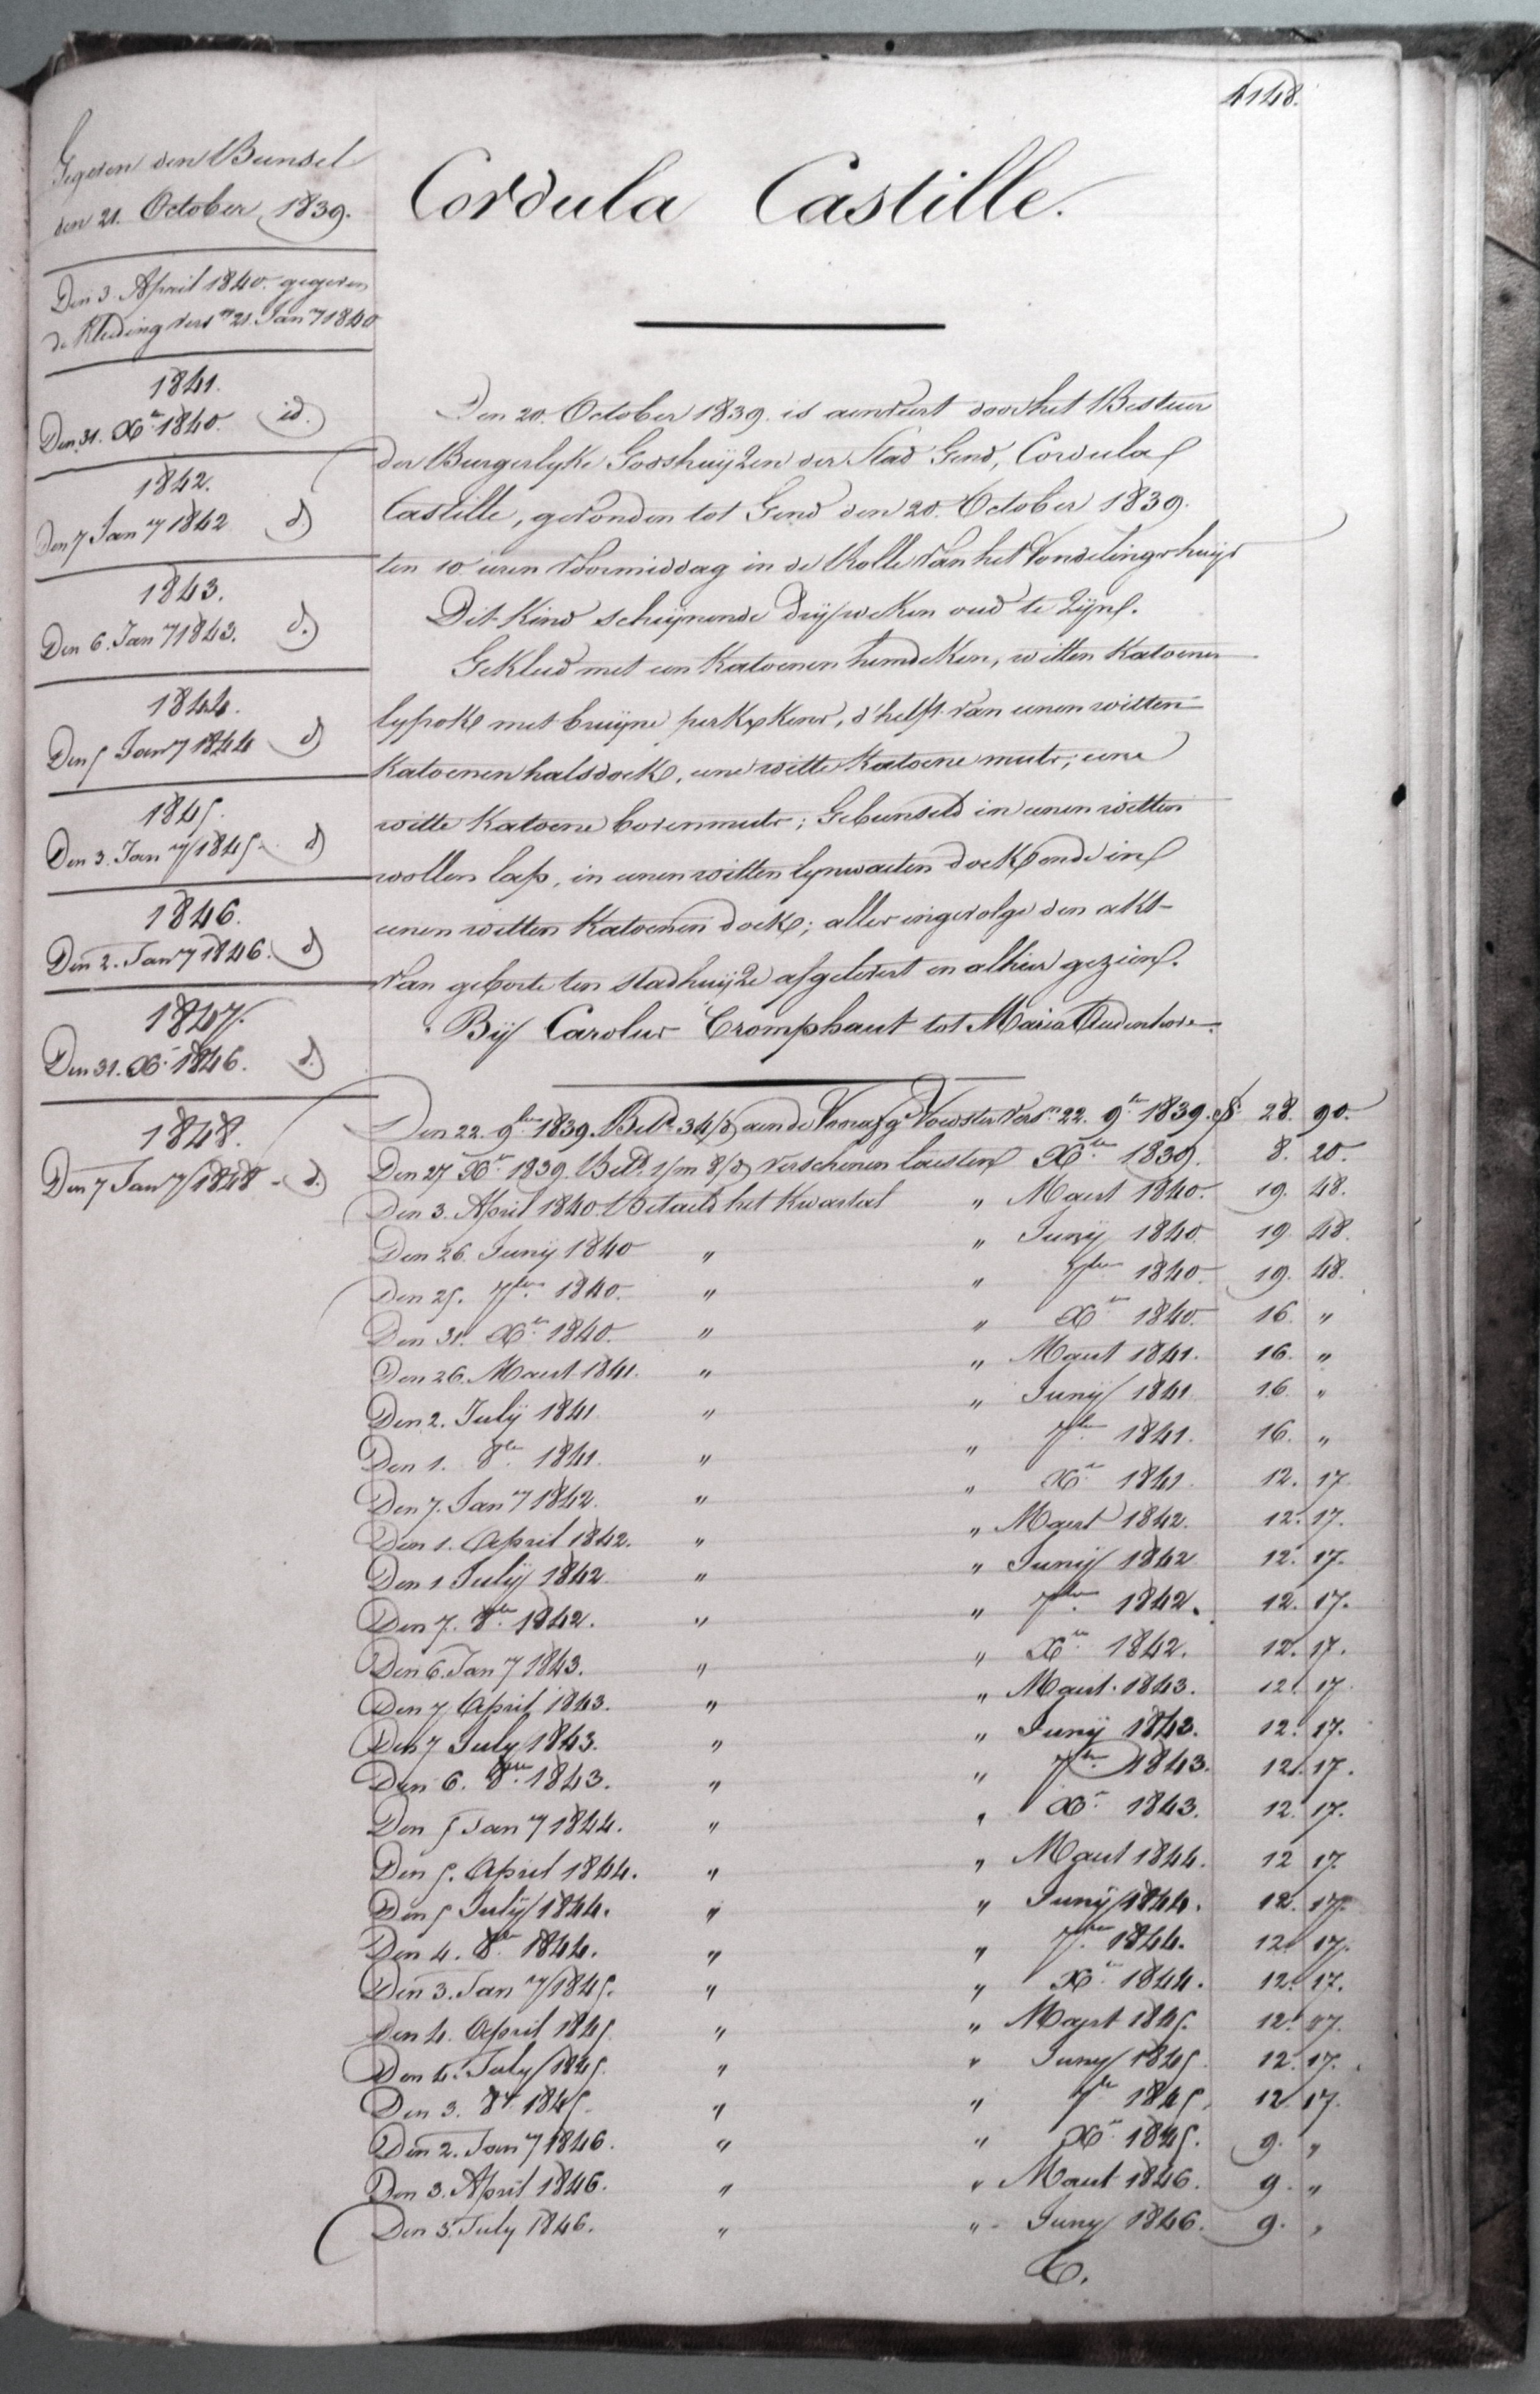 4148.
Gegeven den Bunsel
den 21. October 1839.
Den 3. April 1840. gegeven
de Kleeding vers.n 21. Jan.ry 1840
1841.
Den 31. Xbr 1840. id.
1842.
Den 7 Jan.ry 1842 d.
1843.
Den 6. Jan.ry 1843. d.
1844.
Den 5 Jan.ry 1844 d
1845.
Den 3. Jan.ry 1845 - d
1846.
Den 2. Jan.ry 1846. d
1847.
Den 31. Xr 1846. d.
1848.
Den 7 Jan.ry 1848 - d.
Cordula Castille.
Den 20. October 1839. is aenveirt door het Bestuer
der Burgerlyke Godshuyzen der Stad Gend, Cordula
Castille, gevonden tot Gend den 20. October 1839.
ten 10 uren voormiddag in de Rolle van het Vondelingshuys
Dit Kind scheynende dry weken oud te zyn.
Gekleed met een Katoenen hemdeken, witten Katoenen
lyfrok met bruyne perkxkens, d'helft van eenen witten
Katoenen halsdoek, eene witte Katoene muts, eene
witte Katoene bovenmuts; Gebunseld in eenen witten
wollen lap, in eenen witten lynwaeten doek ende in
eenen witten Katoenen doek; alles ingevolge den akt
van geborte ten stadhuyze afgelevert en alhier gezien.
Bij Carolus Cromphaut tot Maria Audenhove.
Den 22. 9ber 1839. Bet.d 34/d aen de Voorafg.e Voedster vers.n 22. 9br 1839. f. 28. 90.
Den 27 Xbr 1839. Bet.d 1/m 8/d verschenen laesten Xbr 1839. 8. 20.
Den 3. April 1840. Betaeld het Kwartael " Maert 1840. 19. 48.
Den 26. Juny 1840 " " Juny 1840. 19. 48.
Den 25. 7ber 1840. " " 7ber 1840. 19. 48.
Den 31. Xbr 1840. " " Xbr 1840. 16. "
Den 26. Maert 1841. " " Maert 1841. 16. "
Den 2. July 1841. " " Juny 1841 16. "
Den 1. 8br 1841. " " 7ber 1841. 16. "
Den 7. Jan.ry 1842. " " Xbr 1841. 12. 17.
Den 1. April 1842. " " Maert 1842. 12. 17.
Den 1. July 1842. " " Juny 1842 12. 17.
Den 7. 8br 1842. " " 7ber 1842. 12. 17.
Den 6. Jan.ry 1843. " " Xbr 1842. 12. 17.
Den 7 April 1843. " " Maert 1843. 12. 17.
Den 7 July 1843. " " Juny 1843. 12. 17.
Den 6. 8bre 1843. " " 7br 1843. 12. 17.
Den 5 Jan.ry 1844. " " Xr 1843. 12. 17.
Den 5. April 1844. " " Maert 1844. 12 17.
Den 5 July 1844. " " Juny 1844. 12. 17.
Den 4. 8br 1844. " " 7ber 1844. 12. 17.
Den 3. Jan.ry 1845. " " Xbr 1844. 12. 17.
Den 4. April 1845. " " Maert 1845. 12. 17.
Den 4. July 1845. " " Juny 1845. 12. 17.
Den 3. 8br 1845. " " 7br 1845. 12. 17.
Den 2. Jan.ry 1846. " " Xbr 1845. 9. "
Den 3. April 1846. " " Maert 1846. 9. "
Den 3. July 1846. " " Juny 1846. 9. "